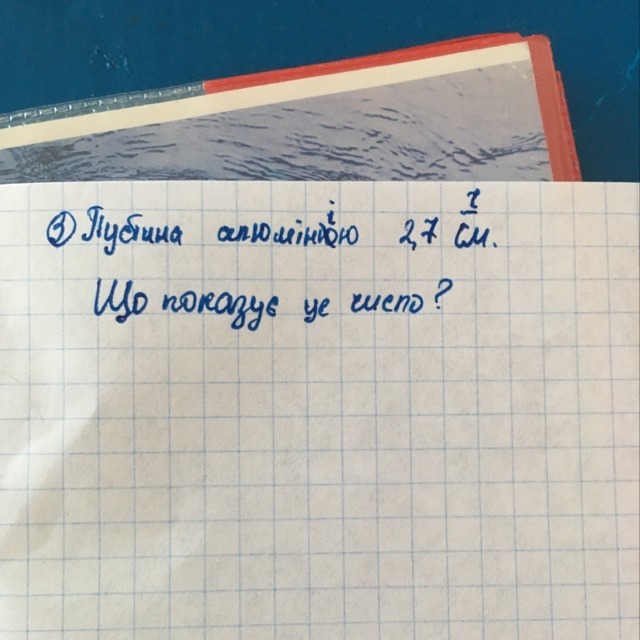 ③ Густина алюмінію 2,7 г/см.
Що показує це число?